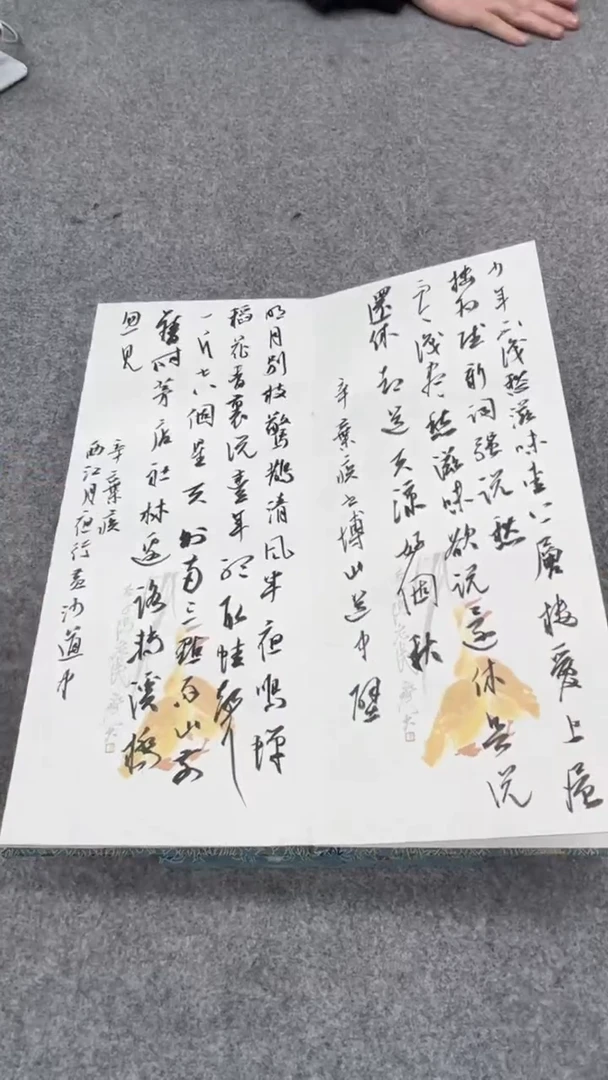 少年不识愁滋味爱上層楼爱上层
楼为赋新词强说愁
而今识尽愁滋味欲说还休欲说
還休却道天凉好個秋
辛棄疾书博山道中壁
明月别枝驚鵲清风半夜鳴蝉
稻花香裏说豊年听取蛙聲
一片七八個星天外两三點雨山前
舊时茅店社林边路转溪橋
忽見
辛棄疾
西江月夜行黄沙道中